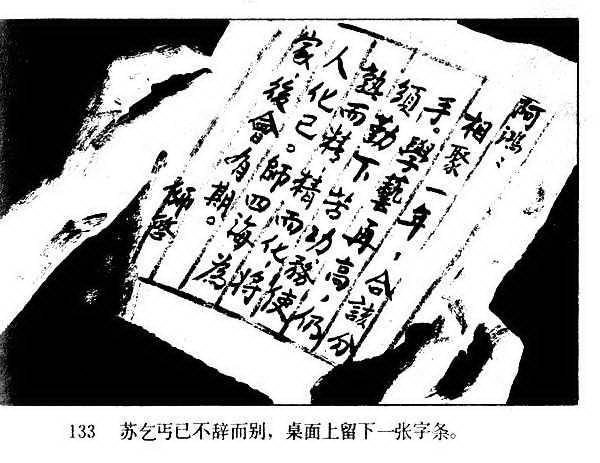 阿鸿：
相聚一年，合該分
手。學藝再高，仍
須勤下苦功，務使
熟而精，精而化，將
人化己。師四海為
家，後會有期。
師啓
133 苏乞丐已不辞而别，桌面上留下一张字条。